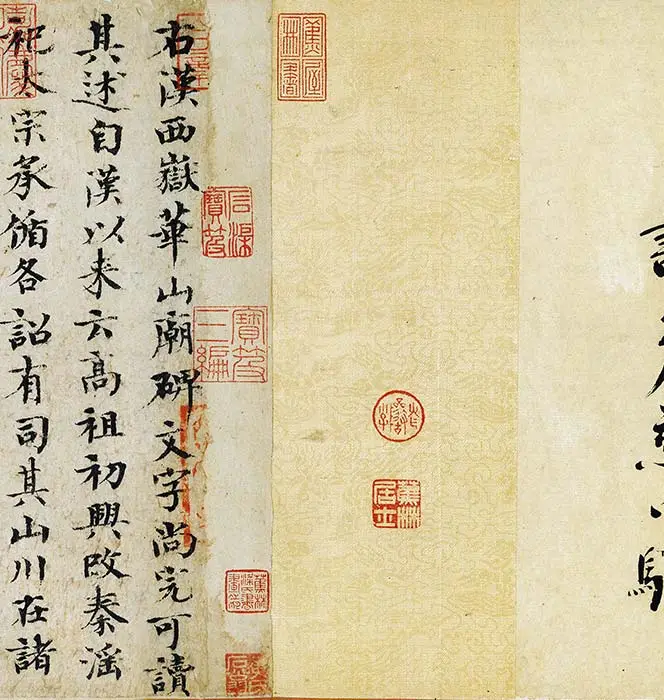 蕉林書屋
蕉林居士
石渠寶笈
寶笈三編
右漢西嶽華山廟碑文字尚完可讀
其述自漢以来云高祖初興改秦淫
祀太宗承循各詔有司其山川在諸